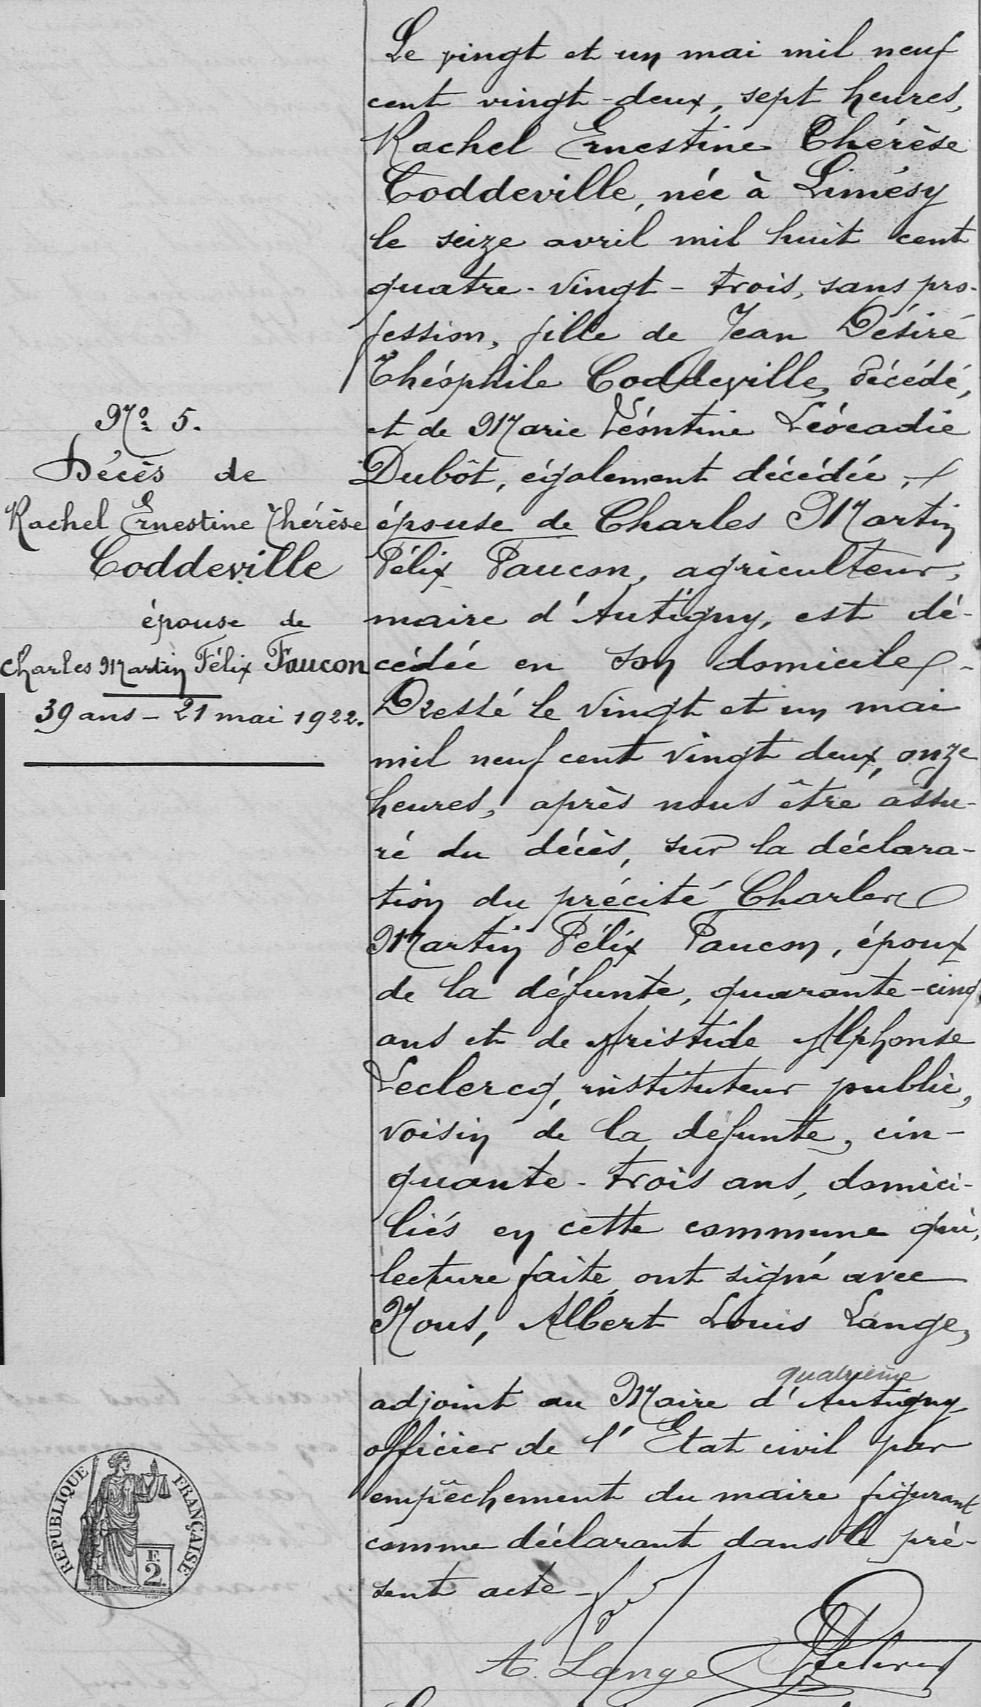 Le vingt et un mai mil neuf
cent vingt-deux, sept heures,
Rachel Ernestine Thérèse
Coddeville, née à Limésy
le seize avril mil huit cent
quatre-vingt-trois, sans pro-
fession, fille de Jean Désiré
Théophile Coddeville, décédé,
et de Marie Léontine Léocadie
Dubôt, également décédée,
épouse de Charles Martin
Félix Faucon, agriculteur,
maire d'Autigny, est dé-
cédée en son domicile.
Dressé le vingt et un mai
mil neuf cent vingt deux, onze
heures, après nous être assu-
ré du décès, sur la déclara-
tion du précité Charles
Martin Félix Faucon, époux
de la défunte, quarante-cinq
ans et de Aristide Alphonse
Leclercq, instituteur public,
voisin de la défunte, cin-
quante-trois ans, domici-
liés en cette commune qui,
lecture faite, ont signé avec
Nous, Albert Louis Lange,
quatrième
adjoint au Maire d'Autigny
officier de l'Etat civil par
empêchement du maire figurant
comme déclarant dans le pré-
sent acte
A. Lange
No 5.
Décès de
Rachel Ernestine Thérèse
Coddeville
épouse de
Charles Martin Félix Faucon
39 ans - 21 mai 1922.
RÉPUBLIQUE FRANÇAISE
F.
2.